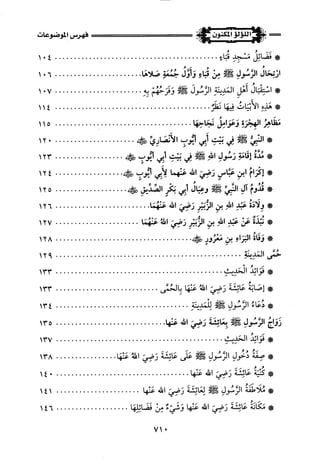 اللؤلؤ المكنون
فهرس الموضوعات
* فَضَائِلُ مَسْجِدِ قُبَاءٍ ١٠٤
ارْتِحَالُ الرَّسُولِ ﷺ مِنْ قُبَاءٍ وَأَوَّلُ جُمُعَةٍ صَلَّاهَا ١٠٦
* اسْتِقْبَالُ أَهْلِ المَدِينَةِ الرَّسُولَ ﷺ وَفَرَحُهُمْ بِهِ ١٠٧
* هَذِهِ الأَبْيَاتُ فِيهَا نَظَرٌ ١١٤
مَظَاهِرُ الهِجْرَةِ وَعَوَامِلُ نَجَاحِهَا ١١٥
* النَّبِيُّ ﷺ فِي بَيْتِ أَبِي أَيُّوبَ الأَنْصَارِيِّ ﷺ ١٢٠
* مُدَّةُ إِقَامَةِ رَسُولِ اللهِ ﷺ فِي بَيْتِ أَبِي أَيُّوبَ ١٢٣
* إِكْرَامُ ابنِ عَبَّاسٍ رَضِيَ اللهُ عَنْهُمَا لِأَبِي أَيُّوبَ ١٢٤
* قُدُومُ آلِ النَّبِيِّ ﷺ وعِيَالِ أَبِي بَكْرٍ الصِّدِّيقِ ١٢٥
* وِلَادَةُ عَبْدِ اللهِ بنِ الزُّبَيْرِ رَضِيَ اللهُ عَنْهُمَا ١٢٦
* نُبْذَةٌ عَنْ عَبْدِ اللهِ بنِ الزُّبَيْرِ رَضِيَ اللهُ عَنْهُمَا ١٢٧
* وَفَاةُ البَرَاءِ بنِ مَعْرُورٍ ١٢٨
حُمَّى المَدِينَةِ ١٢٩
* فَوَائِدُ الحَدِيثِ ١٣٣
* إِصَابَةُ عَائِشَةَ رَضِيَ اللهُ عَنْهَا بِالحُمَّى ١٣٣
* دُعَاءُ الرَّسُولِ ﷺ لِلْمَدِينَةِ ١٣٤
زَوَاجُ الرَّسُولِ ﷺ بِعَائِشَةَ رَضِيَ اللهُ عَنْهَا ١٣٥
* فَوَائِدُ الحَدِيثِ ١٣٧
* صِفَةُ دُخُولِ الرَّسُولِ ﷺ عَلَى عَائِشَةَ رَضِيَ اللهُ عَنْهَا ١٣٨
* كُنْيَةُ عَائِشَةَ رَضِيَ اللهُ عَنْهَا ١٤٠
* مُلَاطَفَةُ الرَّسُولِ ﷺ لِعَائِشَةَ رَضِيَ اللهُ عَنْهَا ١٤١
* مَكَانَةُ عَائِشَةَ رَضِيَ اللهُ عَنْهَا وَشَيْءٌ مِنْ فَضَائِلِهَا ١٤٦
٧١٠